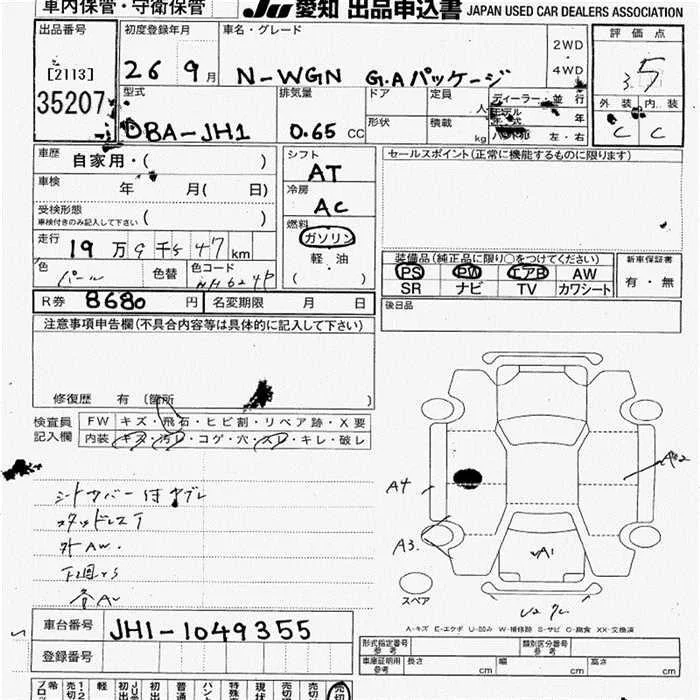 車内保管・守衛保管
JU 愛知 出品申込書 JAPAN USED CAR DEALERS ASSOCIATION
出品番号
[2113]
35207
初度登録年月
26 9月
車名・グレード
N-WGN G.Aパッケージ
2WD
4WD
評価点
3.5
外装 内装
C C
型式
DBA-JH1
排気量
0.65 CC
ドア
形状
定員
人
積載
kg
ディーラー・並行
モデル
年式 年
左・右
車歴
自家用・( )
車検
年 月( 日)
受検形態
車検付きのみ記入して下さい ( )
走行
19万9千547km
色
パール
色替
色コード
シフト
AT
冷房
AC
燃料
ガソリン
軽油
( )
セールスポイント(正常に機能するものに限ります)
装備品(純正品に限り○をつけてください)
PS PW エアB AW
SR ナビ TV カワシート
新車保証書
有・無
後日品
R券 8680円 名変期限 月 日
注意事項申告欄(不具合内容等は具体的に記入して下さい)
修復歴 有 (箇所 )
検査員
記入欄
FW キズ・飛石・ヒビ割・リペア跡・X要
内装 キズ・汚レ・コゲ・穴・スレ・キレ・破レ
シートカバー付 ヤブレ
スタッドレスT
外AW.
下廻サビ
A4
A3
A2
A1
U2
スペア
A-キズ E-エクボ U-凹み W-補修跡 S-サビ C-腐食 XX-交換済
車台番号 JH1-1049355
登録番号
形式指定番号
参考
類別区分番号
参考
車庫証明用
参考
長さ cm 幅 cm 高さ cm